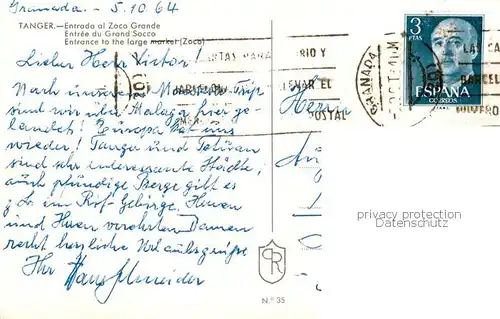 Granada - 5.10.64
TANGER.—Entrada al Zoco Grande
Entrée du Grand Socco
Entrance to the large market (Zoco)
Lieber Herr Victor!
Nach unserem Marokko-Trip
sind wir über Malaga hier ge-
landet! Europa hat uns
wieder! Tanger und Tetuan
sind sehr interessante Städte,
auch pfundige Berge gibt es
z. B. im Rif-Gebirge. Ihnen
und Ihren verehrten Damen
recht herzliche Urlaubsgrüße
Ihr Hans Schneider
Herrn
3
PTAS
ESPAÑA
CORREOS
GRANADA
CARTAS PARA
BARCELONA
LLEVAR EL
POSTAL
BARCEL
NUMERO
CR
N.º 35
privacy protection
AnsichtskartenVersand.com